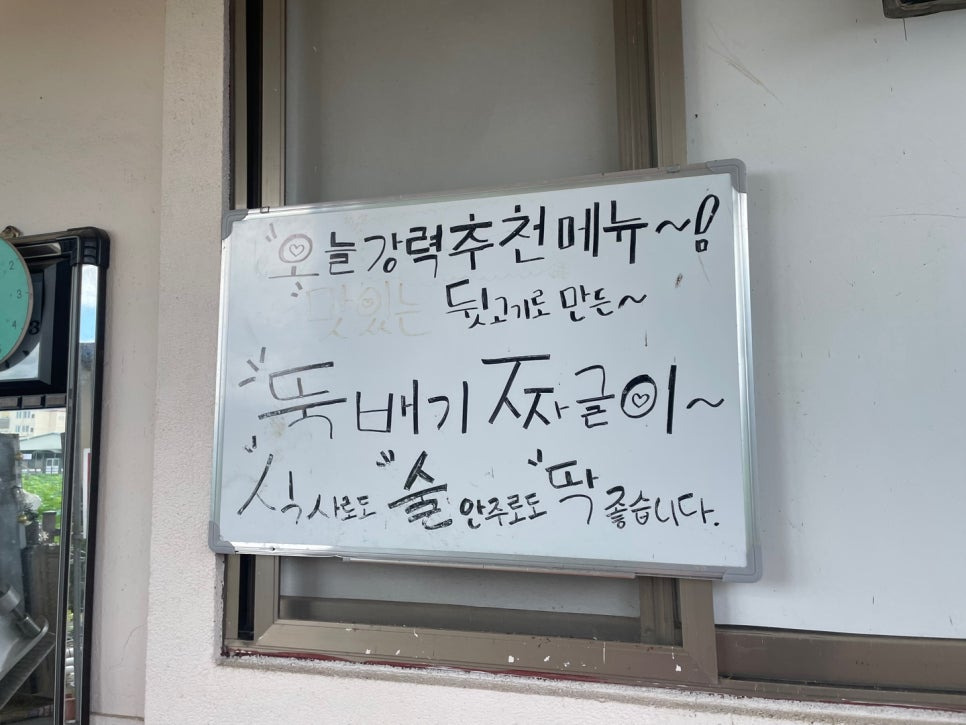 오늘 강력추천메뉴~!
맛있는 뒷고기로 만든~
뚝배기 짜글이~
식사로도 술안주로도 딱 좋습니다.